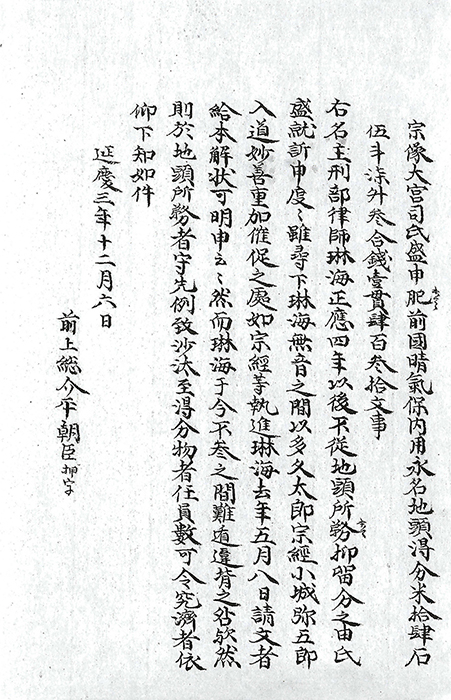 宗像大宮司氏盛申肥前國晴氣保内用永名地頭得分米拾肆石
伍斗柒升叁合錢壹貫肆百叁拾文事
右名主刑部律師琳海正應四年以後不從地頭所務抑留分之由氏
盛就訴申度々雖尋下琳海無音之間以多久太郎宗經小城弥五郎
入道妙善重加催促之處如宗經等執進琳海去年五月八日請文者
給本解状可明申云々然而琳海于今不参之間難遁違背之咎歟然
則於地頭所務者守先例致沙汰至得分物者任員數可令究濟者依
仰下知如件
延慶三年十二月六日
前上総介平朝臣 押字